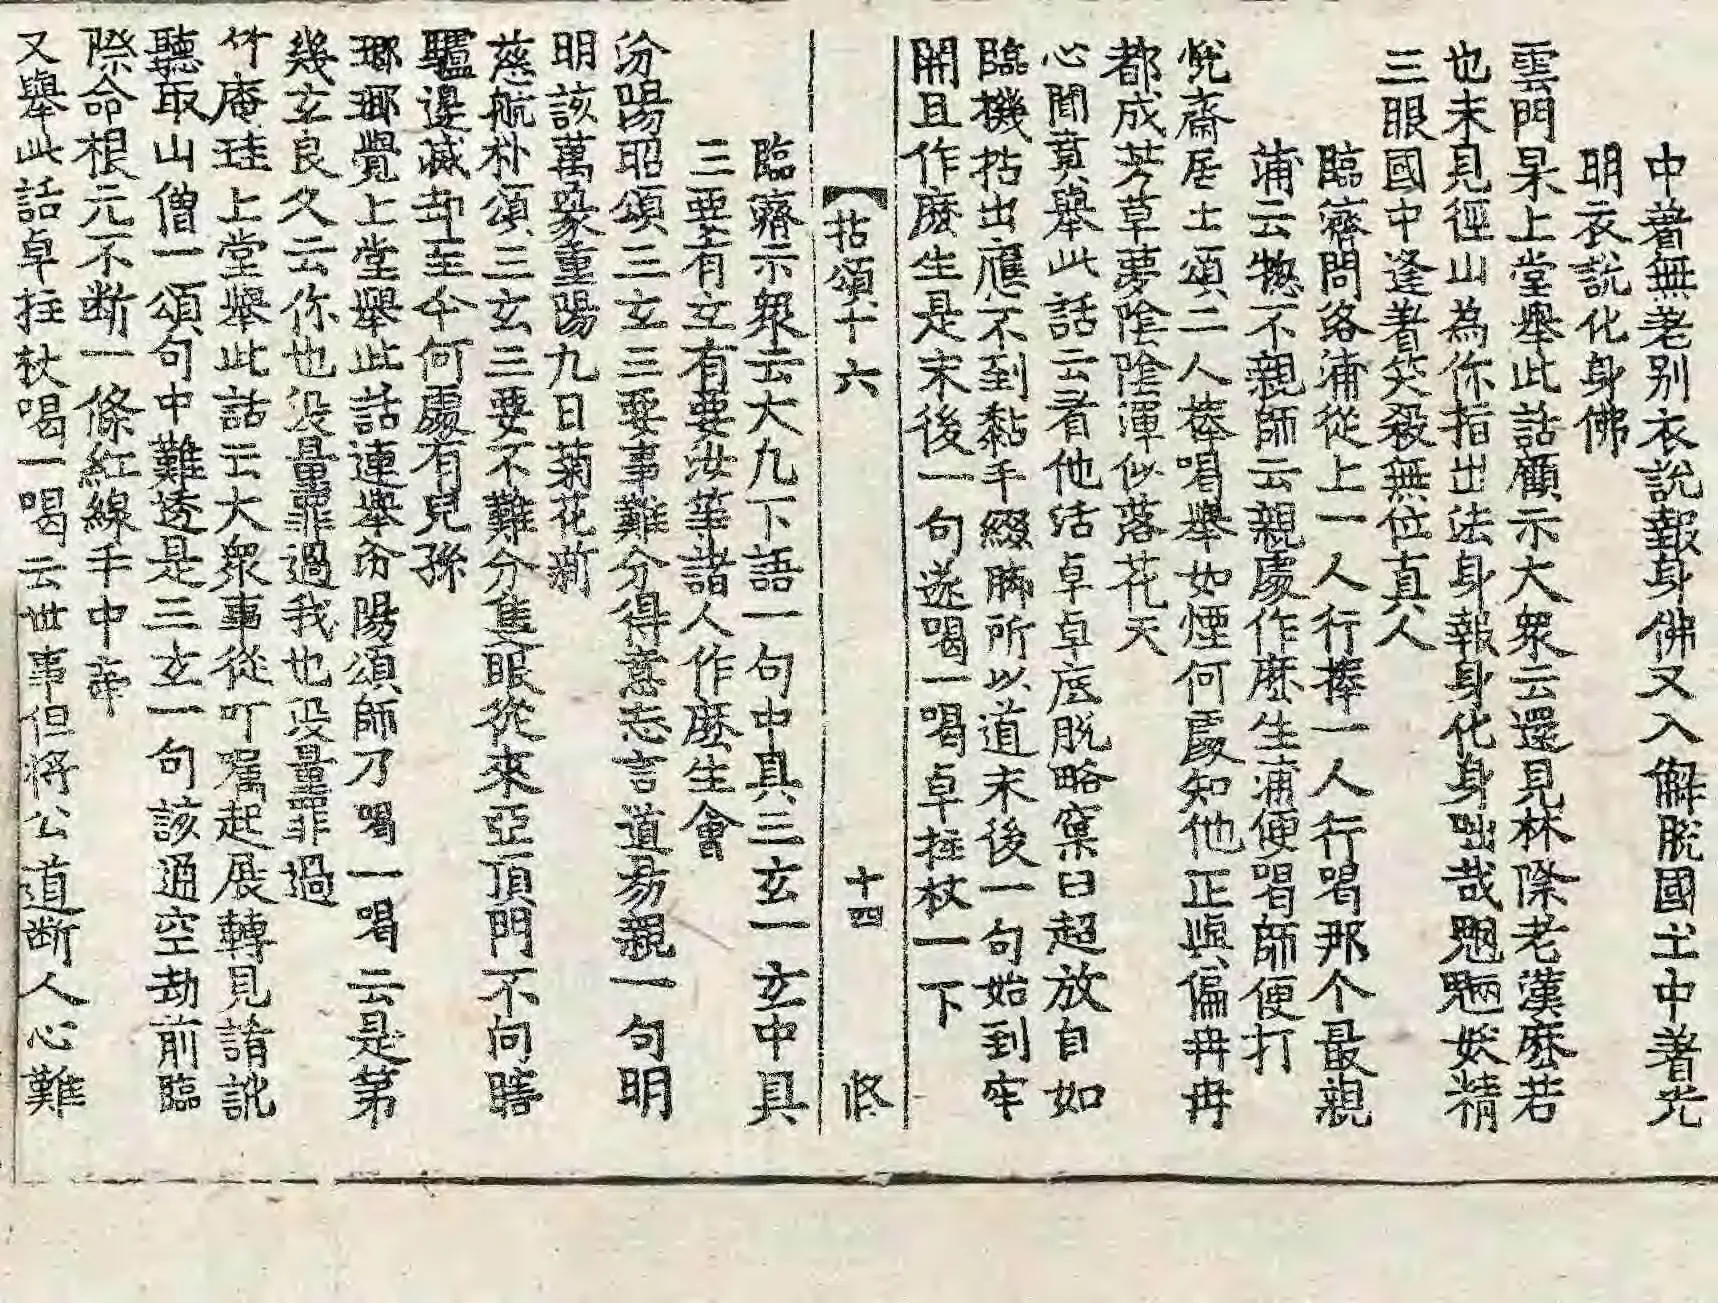 中著無差別衣說報身佛又入解脫國土中著光
明衣說化身佛
雲門杲上堂舉此話顧示大眾云還見林際老漢麽若
也未見徑山為你指出法身報身化身咄哉魍魎妖精
三眼國中逢著笑殺無位真人
臨濟問洛浦從上一人行捧一人行喝那个最親
浦云㹅不親師云親處作麽生浦便喝師便打
悅齋居士頌二人捧喝舉如煙何處知他正與偏冉冉
都成芳草夢陰陰渾似落花天
心聞賁舉此話云看他活卓卓底脫略窠臼超放自如
臨機拈出應不到黏手綴脚所以道末後一句始到牢
開且作麽生是末後一句遂喝一喝卓拄杖一下
【拈頌十六 十四 修
臨濟示眾云大凢下語一句中具三玄一玄中具
三要有玄有要汝等諸人作麽生會
汾陽昭頌三玄三要事難分得意忘言道易親一句明
明該萬象重陽九日菊花新
慈航朴頌三玄三要不難分隻眼從來亞頂門不向瞎
驢邊滅却至今何處有兒孫
瑯瑘覺上堂舉此話連舉汾陽頌師乃喝一喝云是第
幾玄良久云你也没量罪過我也没量罪過
竹庵珪上堂舉此話云大眾事從叮囑起展轉見誵訛
聽取山僧一頌句中難透是三玄一句該通空劫前臨
際命根元不断一條紅線手中牽
又舉此話卓拄杖喝一喝云世事但將公道断人心難